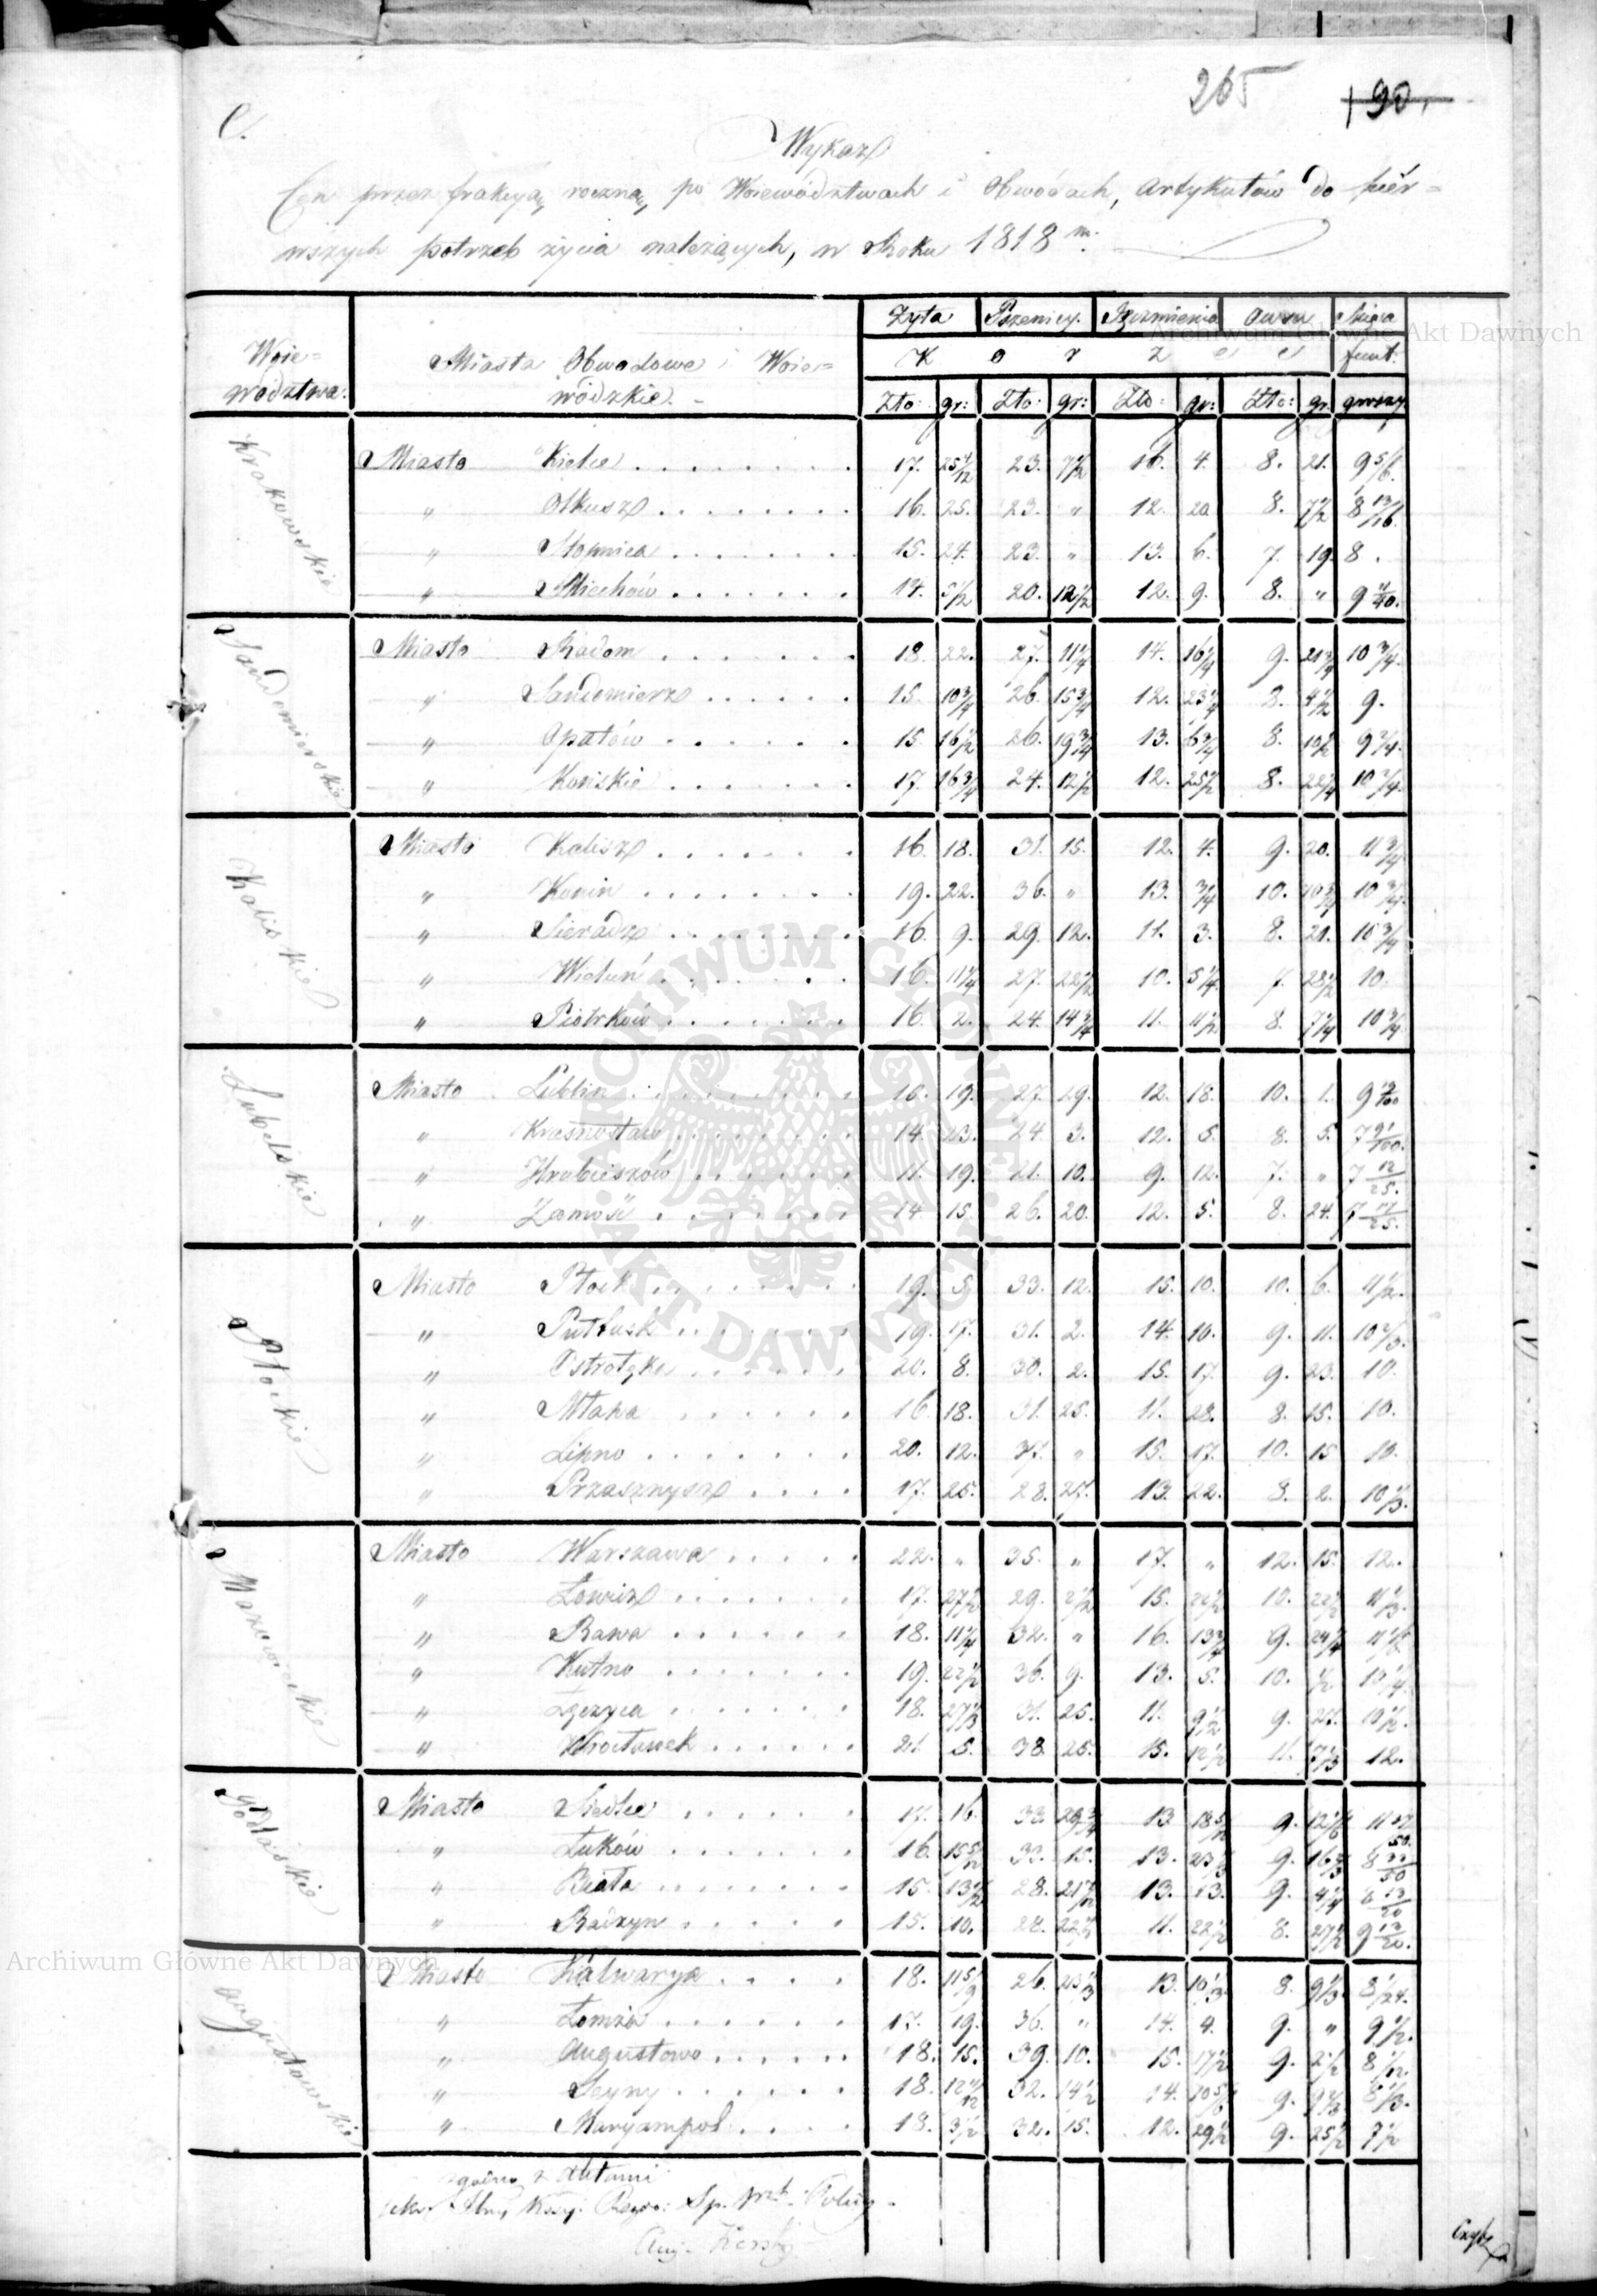 265 190.
C.
Wykaz
Cen przez frakcyą roczną, po Woiewództwach i Obwodach, Artykułów do piér=
wszych potrzeb życia należących, w Roku 1818 m.
Żyta Pszenicy. Jęczmienia Owsa Mięsa
Woie= Miasta Obwodowe i Woie= K o r z e c funt.
wodztwa. wódzkie. Zło: gr: Zło: gr: Zło: gr: Zło: gr. groszy
Krakowskie
Miasto Kielce 17. 25 4/12 23. 7 1/2 16. 4. 8. 21. 9 5/6.
" Olkusz 16. 25. 23. " 12. 20 8. 7 1/2 8 13/16.
" Stopnica 15. 24. 23. " 13. 6. 7. 19. 8.
" Miechów 14. 5 1/2 20. 12 1/2 12. 9. 8. "
Sandomierskie
Miasto Radom 18. 22. 27. 11 1/4 14. 16 1/4 9. 21 3/4 10 3/4.
" Sandomierz 15. 10 3/4 26. 15 3/4 12. 23 1/4 8. 4 1/2 9.
" Opatów 15. 16 1/2 26. 19 3/4 13. 6 3/4 8. 10 1/2 9 3/4.
" Końskie 17. 16 3/4 24. 12 1/2 12. 25 1/2 8. 22 1/4 10 3/4.
Kaliskie
Miasto Kalisz 16. 18. 31. 15. 12. 4. 9. 20. 11 3/4
" Konin 19. 22. 36. " 13. 3/4 10. 10 3/4
" Sieradz 16. 9. 29. 12. 11. 3. 8. 21. 10 3/4
" Wieluń 16. 11 1/4 27. 22 1/2 10. 5 1/4. 7. 28 1/2 10.
" Piotrków 16. 2. 24. 14 3/4 11. 11 1/2 8. 7 1/4 10 3/4
Lubelskie
Miasto Lublin 16. 19. 27. 29. 12. 18. 10. 1.
" Krasnostaw 14. 23. 24. 3. 12. 5. 8. 5. 7 91/100.
" Hrubieszów 11. 19. 21. 10. 9. 12. 7. " 7 12/25.
" Zamość 14 15. 26. 20. 12. 5. 8. 24. 7 11/25.
Płockie
Miasto Płock 19. 5. 33. 12. 15. 10. 10. 6. 11 1/2.
" Pułtusk 19. 17. 31. 2. 14. 10. 9. 11. 10 2/3.
" Ostrołęka 20. 8. 30. 2. 15. 17. 9. 23. 10.
" Mława 16. 18. 31. 25. 11. 28. 8. 15. 10.
" Lipno 20. 12. 37. " 15. 17. 10. 15 10.
" Przasnysz 17. 25. 28. 27. 13. 22. 8. 2. 10 1/3.
Mazowieckie
Miasto Warszawa 22. " 35. " 17. " 12. 15. 12.
" Łowicz 17. 27 1/2 29. 2 1/2 15. 22 1/2 10. 22 1/2 11 1/3.
" Rawa 18. 11 1/4 32. " 16. 13 3/4 9. 24 1/4
" Kutno 19. 22 1/2 36. 9. 13. 5. 10. 1/2 10 1/4.
" Łęczyca 18. 27 1/3 31. 25. 11. 9 1/2 9. 27. 10 1/2.
" Włocławek 21. 5. 38. 25. 15. 12 1/2 11. 7 1/3 12.
Podlaskie
Miasto Siedlce 17. 16. 33. 29 3/4 13. 18 5/12 9.
" Łuków 16. 15 5/12 33. 15. 13. 23 1/3 9. 16 2/3
" Biała 15. 13 1/2 28. 13. 13. 9. 4 1/4
" Radzyn 15. 10. 28. 22 1/2 11. 22 1/2 8. 27 1/2
Augustowskie
Miasto Kalwarya 18. 11 5/9 26. 23 1/3 13. 10 1/3 8. 9 1/3. 8 1/24.
" Łomża 17. 19. 36. " 14. 4. 9. " 9 1/2.
" Augustowo 18. 15. 39. 10. 15. 17 1/2 9. 2 1/2 8 1/12.
" Seyny 18. 32. 14 1/2 14. 10 5/6 9. 8 1/3.
" Maryampol 18. 3 1/2 32. 15. 12. 29 1/2 9. 25 1/2 7 1/2
zgodno z Aktami
Archiwum Główne Akt Dawnych
ARCHIWUM GŁÓWNE AKT DAWNYCH
Archiwum Główne Akt Dawnych